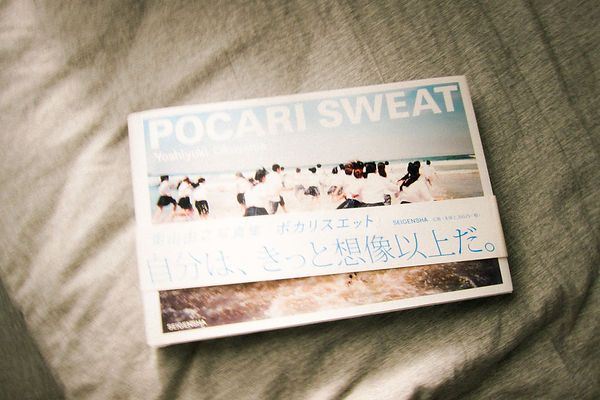 POCARI SWEAT
Yoshiyuki Okuyama
奥山由之 写真集「ポカリスエット」 SEIGENSHA
自分は、きっと想像以上だ。
SEIGENSHA